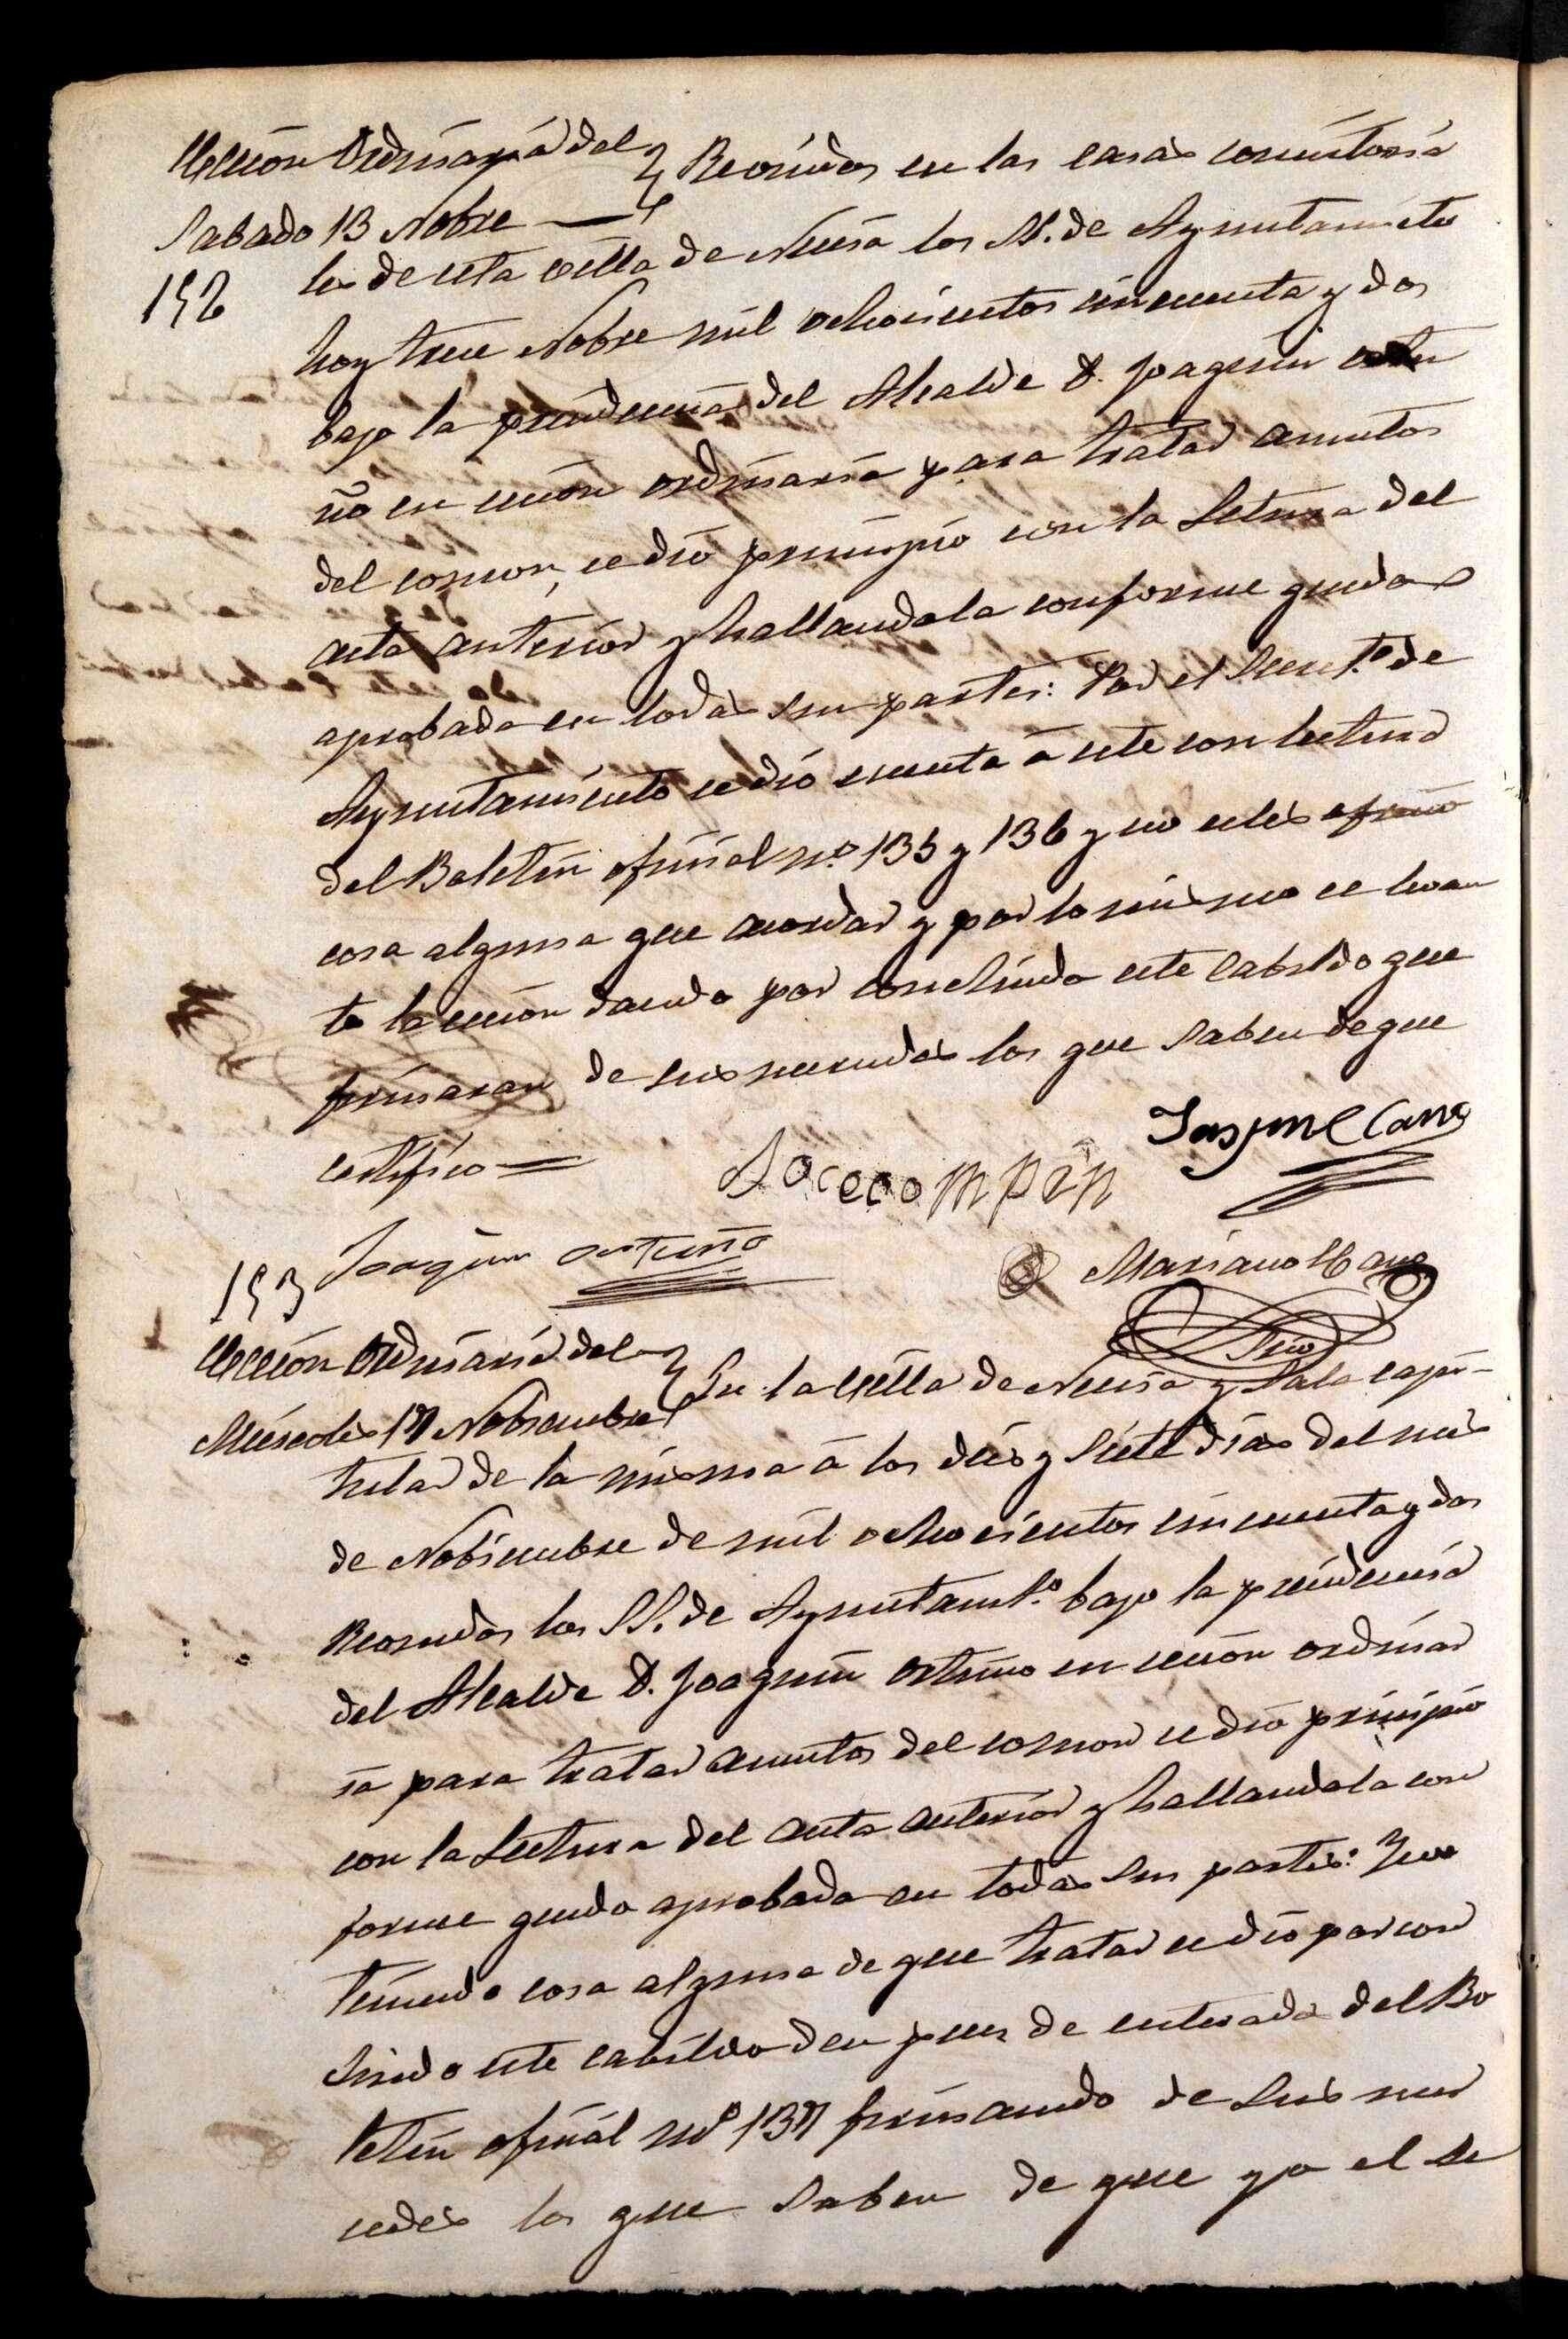 Seccion Ordinaria del
Sabado 13 Nobre
152
Reonidos en las casas consistoria
les de esta villa de Nueva los SS. de Ayuntamieto
hoy trece Nobre mil ochocientos cincuenta y dos
bajo la precidencia del Alcalde D. Joaquin ortu
ño en cecion ordinaria para tratar asuntos
del comon, se dio principio con la Letura del
acta anterior y hallandola conforme quedo
aprobada en todas sus partes: Por el Secret.º de
Ayuntamiento se dio cuenta á este con lectura
del Boletin oficial n.º 135 y 136 y no seles ofrecio
cosa alguna que acordar y por lo mismo se levan
to la cecion dando por concluido este Cabildo que
firmaran de sus mercedes los que saben de que
certifico
Jayme Cano
Joaquin ortuño
Mariano Cano
Srio
153
Seccion Ordinaria del
Miercoles 17 Nobiembre
En la Villa de Nueva y Sala capi-
tular de la misma á los dies y Siete dias del mes
de Nobiembre de mil ochocientos cincuenta y dos
Reonidos los SS. de Ayuntamt.º bajo la precidencia
del Alcalde D. Joaquin ortuno en cecion ordinar
ia para tratar asuntos del comon se dio principio
con la Lectura del acta anterior y hallandola con
forme quedo aprobada en todas sus partes: Y no
teniendo cosa alguna de que tratar se dio por con
cluido este cabildo des pues de enterados del Bo
letin oficial nº 137 firmando de sus mer
cedes los que Saben de que yo el Se